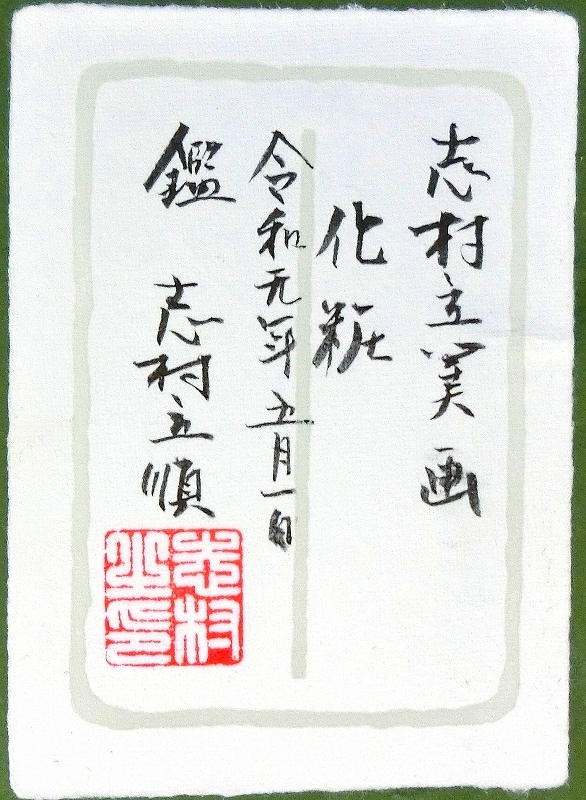 志村立美画
化粧
令和元年五月一日
鑑 志村立順
志村